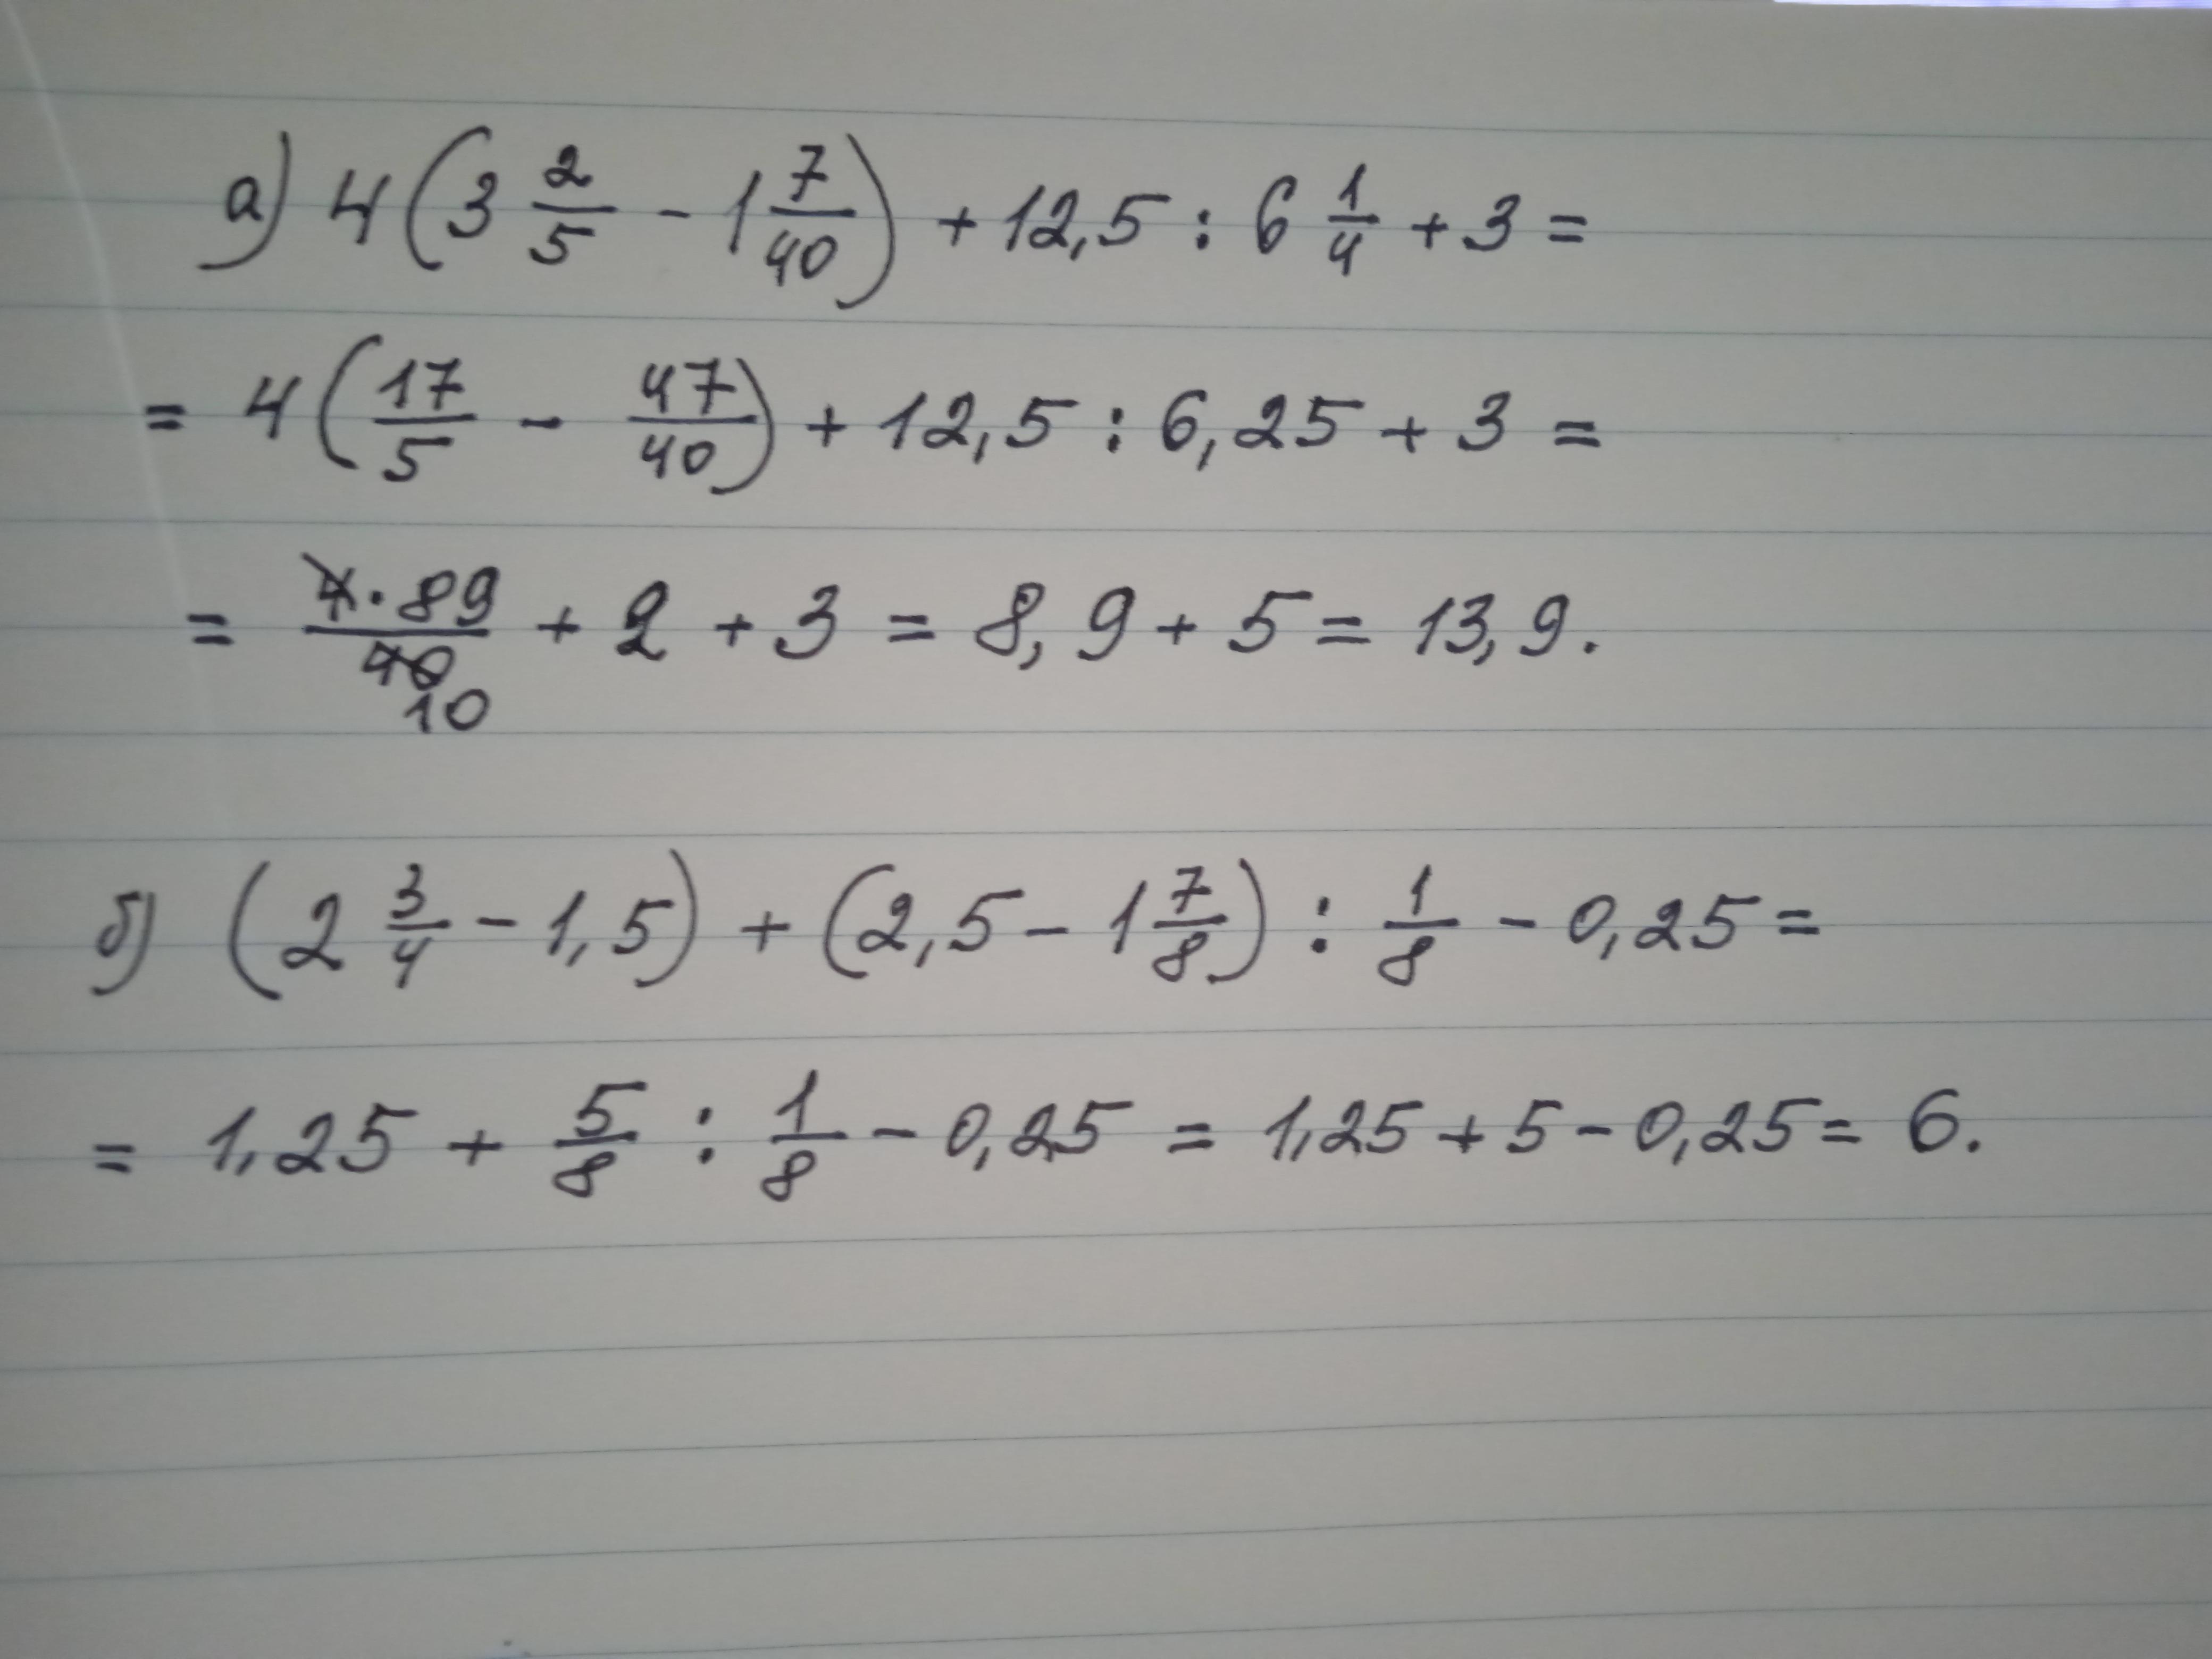 а) 4(3 2/5 - 1 7/40) + 12,5 : 6 1/4 + 3 =
= 4(17/5 - 47/40) + 12,5 : 6,25 + 3 =
= 4·89/40 + 2 + 3 = 8,9 + 5 = 13,9.
10
б) (2 3/4 - 1,5) + (2,5 - 1 7/8) : 1/8 - 0,25 =
= 1,25 + 5/8 : 1/8 - 0,25 = 1,25 + 5 - 0,25 = 6.